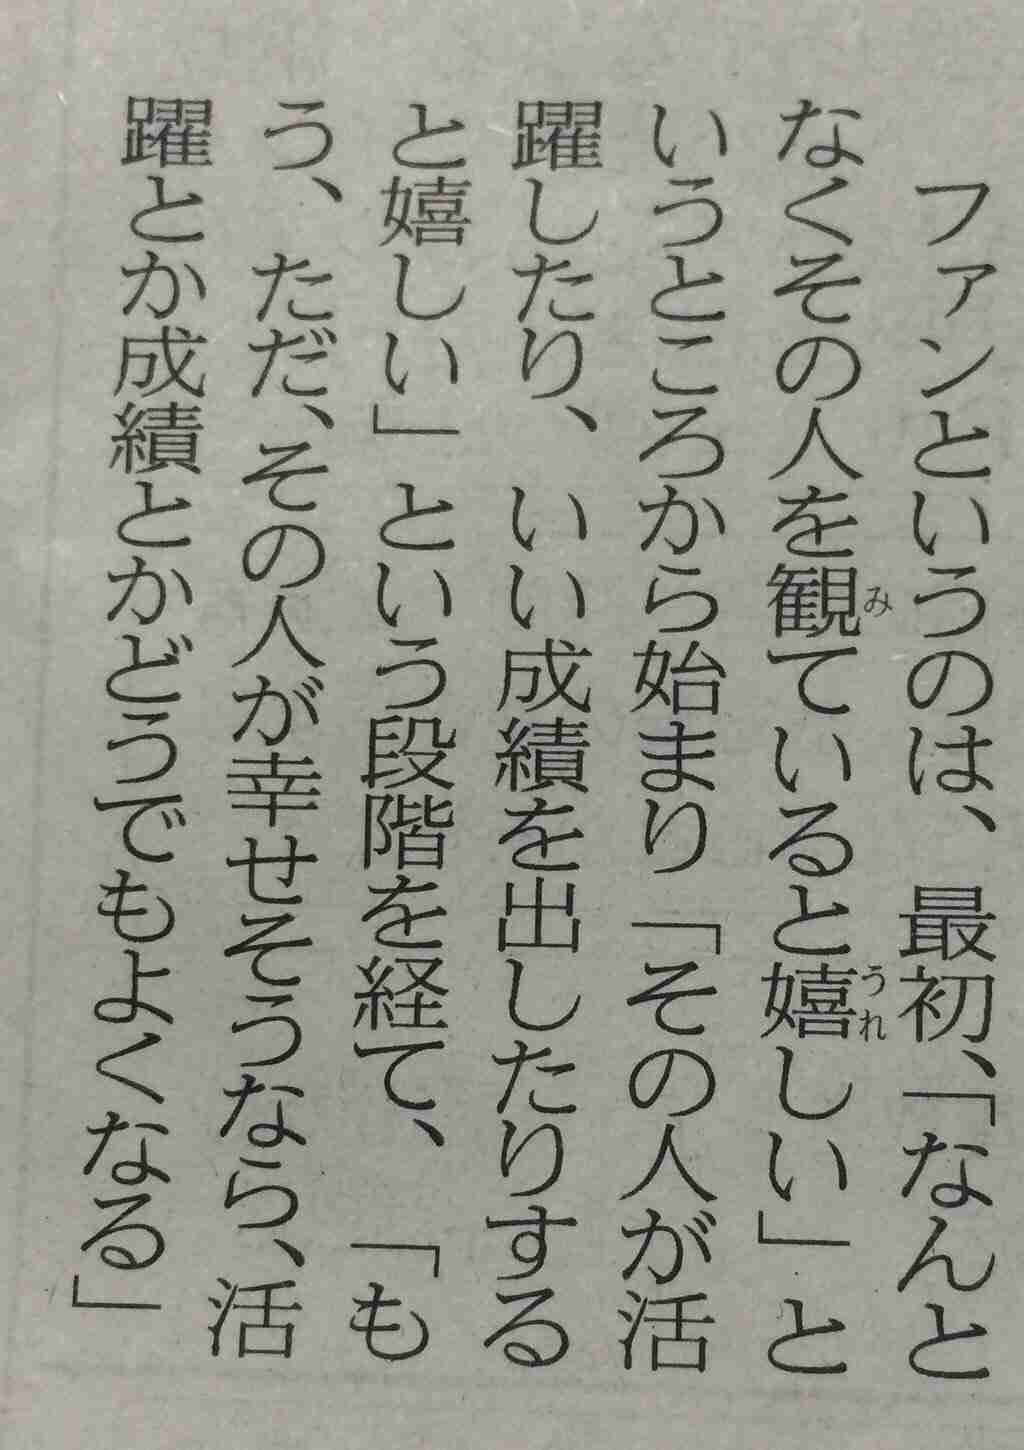 ファンというのは、最初、「なんと
なくその人を観ていると嬉しい」と
み
うれ
いうところから始まり「その人が活
躍したり、いい成績を出したりする
と嬉しい」という段階を経て、「も
う、ただ、その人が幸せそうなら、活
躍とか成績とかどうでもよくなる」